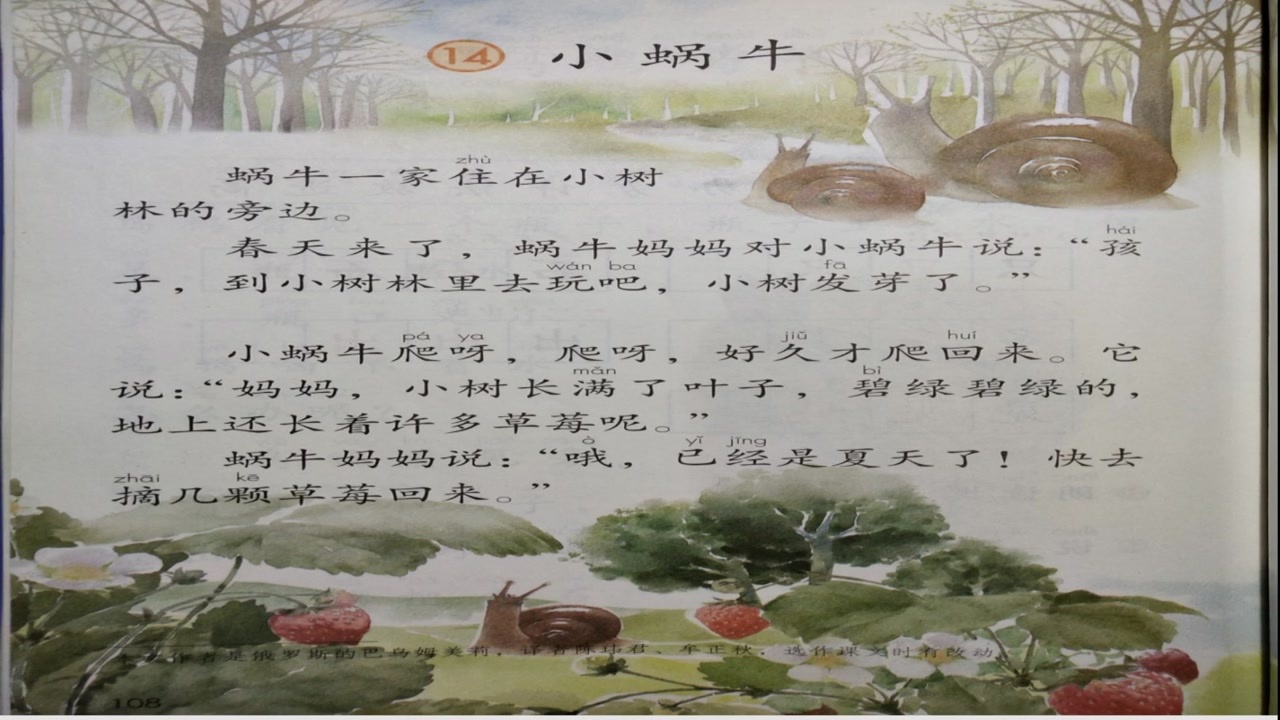 14 小蜗牛
zhù
蜗牛一家住在小树
林的旁边。
hái
春天来了，蜗牛妈妈对小蜗牛说：“孩
wán ba fā
子，到小树林里去玩吧，小树发芽了。”
pá ya jiǔ huí
小蜗牛爬呀，爬呀，好久才爬回来。它
mǎn bì
说：“妈妈，小树长满了叶子，碧绿碧绿的，
地上还长着许多草莓呢。”
ò yǐ jīng
蜗牛妈妈说：“哦，已经是夏天了！快去
zhāi kē
摘几颗草莓回来。”
本文作者是俄罗斯的巴乌姆美莉，译者陈玮君、牟正秋，选作课文时有改动。
108